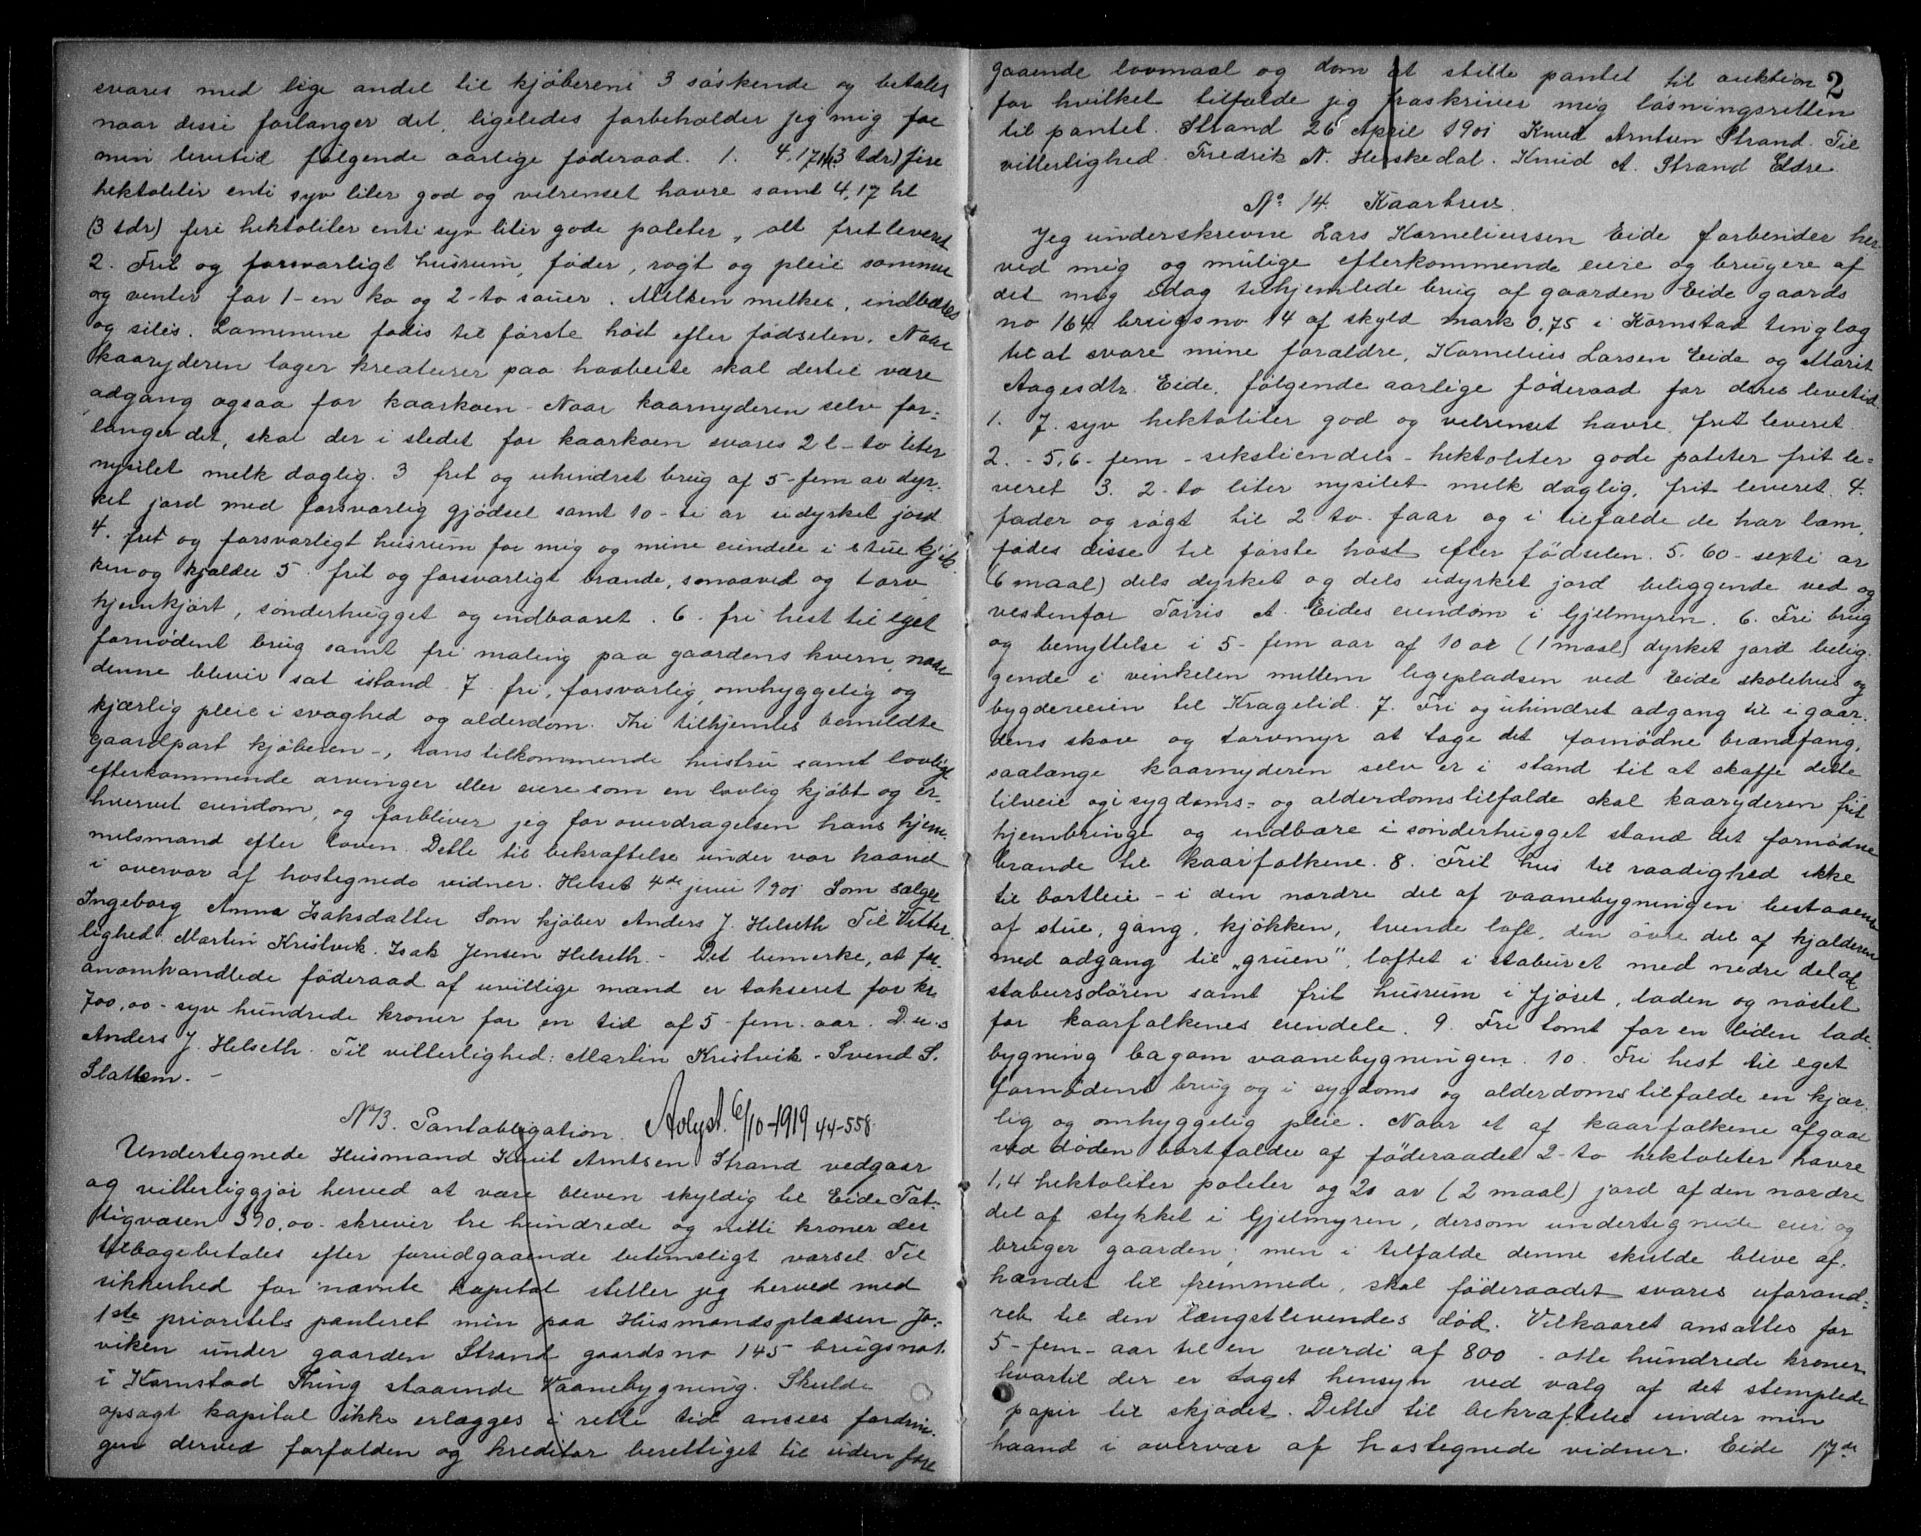 svares med lige andel til kjøberens 3 søskende og betales
naar disse forlanger det, ligeledes forbeholder jeg mig for
min levetid følgende aarlige føderaad. 1. 4,17 hl (3 tdr) fire
hektoliter enti syv liter god og velrenset havre samt 4,17 hl
(3 tdr) fire hektoliter enti syv liter gode poteter, alt frit leveret
2. Frit og forsvarligt husrum, foder, røgt og pleie sommer
og vinter for 1 - en ko og 2 - to sauer. Melken melkes, indbæres
og siles. Lammene fødes til første høst efter fødselen. Naar
kaaryderen tager kreaturer paa haabeite skal dertil være
adgang ogsaa for kaarkoen - Naar kaarnyderen selv for-
langer det, skal der i stedet for kaarkoen svares 2 l - to liter
nysilet melk daglig. 3 frit og uhindret brug af 5 - fem ar dyr-
ket jord med forsvarlig gjødsel samt 10 - ti ar udyrket jord
4. frit og forsvarligt husrum for mig og mine eiendele i stue kjøk-
ken og kjælder 5 frit og forsvarligt brænde, smaaved og torv
hjemkjørt, sønderhugget og indbaaret. 6. fri hest til eget
fornødent brug samt fri maling paa gaardens kvern, naar
denne bliver sat istand. 7. fri, forsvarlig, omhyggelig og
kjærlig pleie i svaghed og alderdom. Thi tilhjemles bemeldte
gaardpart kjøberen -, hans tilkommende hustru samt lovlige
efterkommende arvinger eller eiere som en lovlig kjøbt og er-
hvervet eiendom, og forbliver jeg for overdragelsen hans hjem-
melsmand efter loven. Dette til bekræftelse under vor haand
i overvær af hostegnede vidner. Helset 4de juni 1901 Som sælger
Ingeborg Anna Isaksdatter Som kjøber Anders J. Helseth Til Vitter-
lighed: Martin Kristvik. Isak Jensen Helseth. - Det bemerkes, at for-
anomhandlede føderaad af uvillige mænd er takseret for kr
700,00 - syv hundrede kroner for en tid af 5 - fem - aar. D.u.s
Anders J. Helseth. Til vitterlighed: Martin Kristvik - Svend S.
Slatlem. -
No 13. Pantobligation. Avlyst 6/10-1919 44-558.
Undertegnede Husmand Knut Arntsen Strand vedgaar
og vitterliggjør herved at være bleven skyldig til Eide Fat-
tigvæsen 390,00 - skriver tre hundrede og nitti kroner der
tilbagebetales efter forudgaaende betimeligt varsel. Til
sikkerhed for nævnte kapital stiller jeg herved med
1ste prioritets panteret min paa Husmandspladsen Jo-
viken under gaarden Strand gaardsno 145 brugsno 1
i Kornstad Thing staaende Vaanebygning. Skulde
opsagt kapital ikke erlægges i rette tid ansees fordrin-
gen derved forfalden og kreditor berettiget til uden fore
2
gaaende lovmaal og dom at stille pantet til auktion
for hvilket tilfælde jeg fraskriver mig løsningsretten
til pantet. Strand 26 April 1901 Knud Arntsen Strand. Til
vitterlighed. Fredrik N. Heiskedal. Knud A. Strand Eldre.
No 14. Kaarbrev.
Jeg underskrevne Lars Korneliussen Eide forbender her-
ved mig og mulige efterkommende eiere og brugere af
det mig idag tilhjemlede brug af gaarden Eide gaards
no 164 brugsno 14 af skyld mark 0,75 i Kornstad tinglag
til at svare mine forældre, Kornelius Larsen Eide og Marit
Aagesdtr. Eide, følgende aarlige føderaad for deres levetid
1. 7. syv hektoliter god og velrenset havre, frit leveret.
2. - 5,6 - fem - sekstiendels - hektoliter gode poteter frit le-
veret 3. 2 - to liter nysilet melk daglig, frit leveret. 4.
foder og røgt til 2 to - faar og i tilfælde de har lam,
fødes disse til første høst efter fødselen. 5. 60 - sexti ar
(6 maal) dels dyrket og dels udyrket jord beliggende ved og
vestenfor Tørris A. Eides eiendom i Gjelmyren. 6. Fri brug
og benyttelse i 5 - fem aar af 10 ar (1 maal) dyrket jord belig-
gende i vinkelen mellem legepladsen ved Eide skolehus og
bygdeveien til Kragelid. 7. Fri og uhindret adgang til i gaar-
dens skov og torvmyr at tage det fornødne brændfang,
saalænge kaarnyderen selv er i stand til at skaffe dette
tilveie og i sygdoms- og alderdomstilfælde skal kaaryderen frit
hjembringe og indbære i sønderhugget stand det fornødne
brænde til kaarfolkene. 8. Frit hus til raadighed ikke
til bortleie - i den nordre del af vaanebygningen bestaaende
af stue, gang, kjøkken, tvende loft, den øvre del af kjælderen
med adgang til „gruen", loftet i staburet med nedre del af
stabursdøren samt frit husrum i fjøset, laden og nøstet
for kaarfolkenes eiendele. 9. Fri tomt for en liden lade-
bygning bagom vaanebygningen. 10. Fri hest til eget
fornødent brug og i sygdoms og alderdomstilfælde en kjær-
lig og omhyggelig pleie. Naar et af kaarfolkene afgaar
ved døden bortfalder af føderaadet 2 - to hektoliter havre
1,4 hektoliter poteter og 20 ar (2 maal) jord af den nordre
del af stykket i Gjelmyren, dersom undertegnede eier og
bruger gaarden; men i tilfælde denne skulde blive af-
hændet til fremmede, skal føderaadet svares uforand-
ret til den længstlevendes død. Vilkaaret ansættes for
5 - fem - aar til en værdi af 800 - otte hundrede kroner
hvortil der er taget hensyn ved valg af det stemplede
papir til skjødet. Dette til bekræftelse under min
haand i overvær af hostegnede vidner. Eide 17de